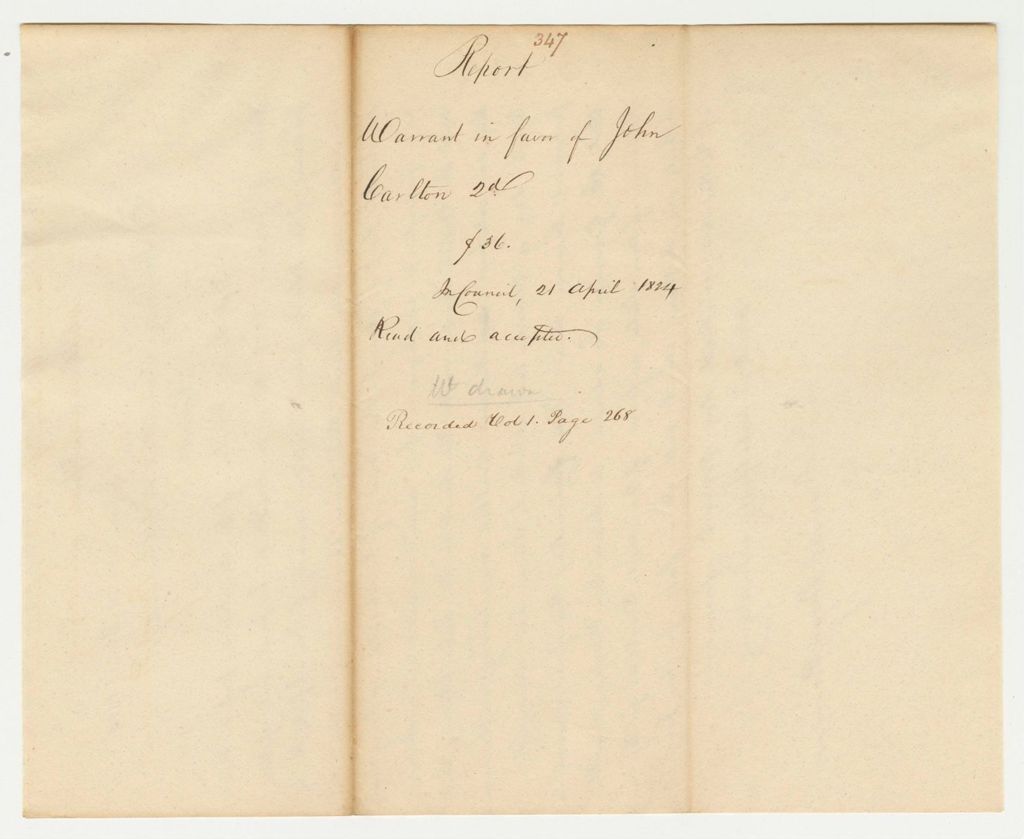 347
Report
Warrant in favor of John
Carlton 2d
$36.
In Council, 21 April 1824
Read and accepted.
Wt drawn
Recorded Vol 1. Page 268